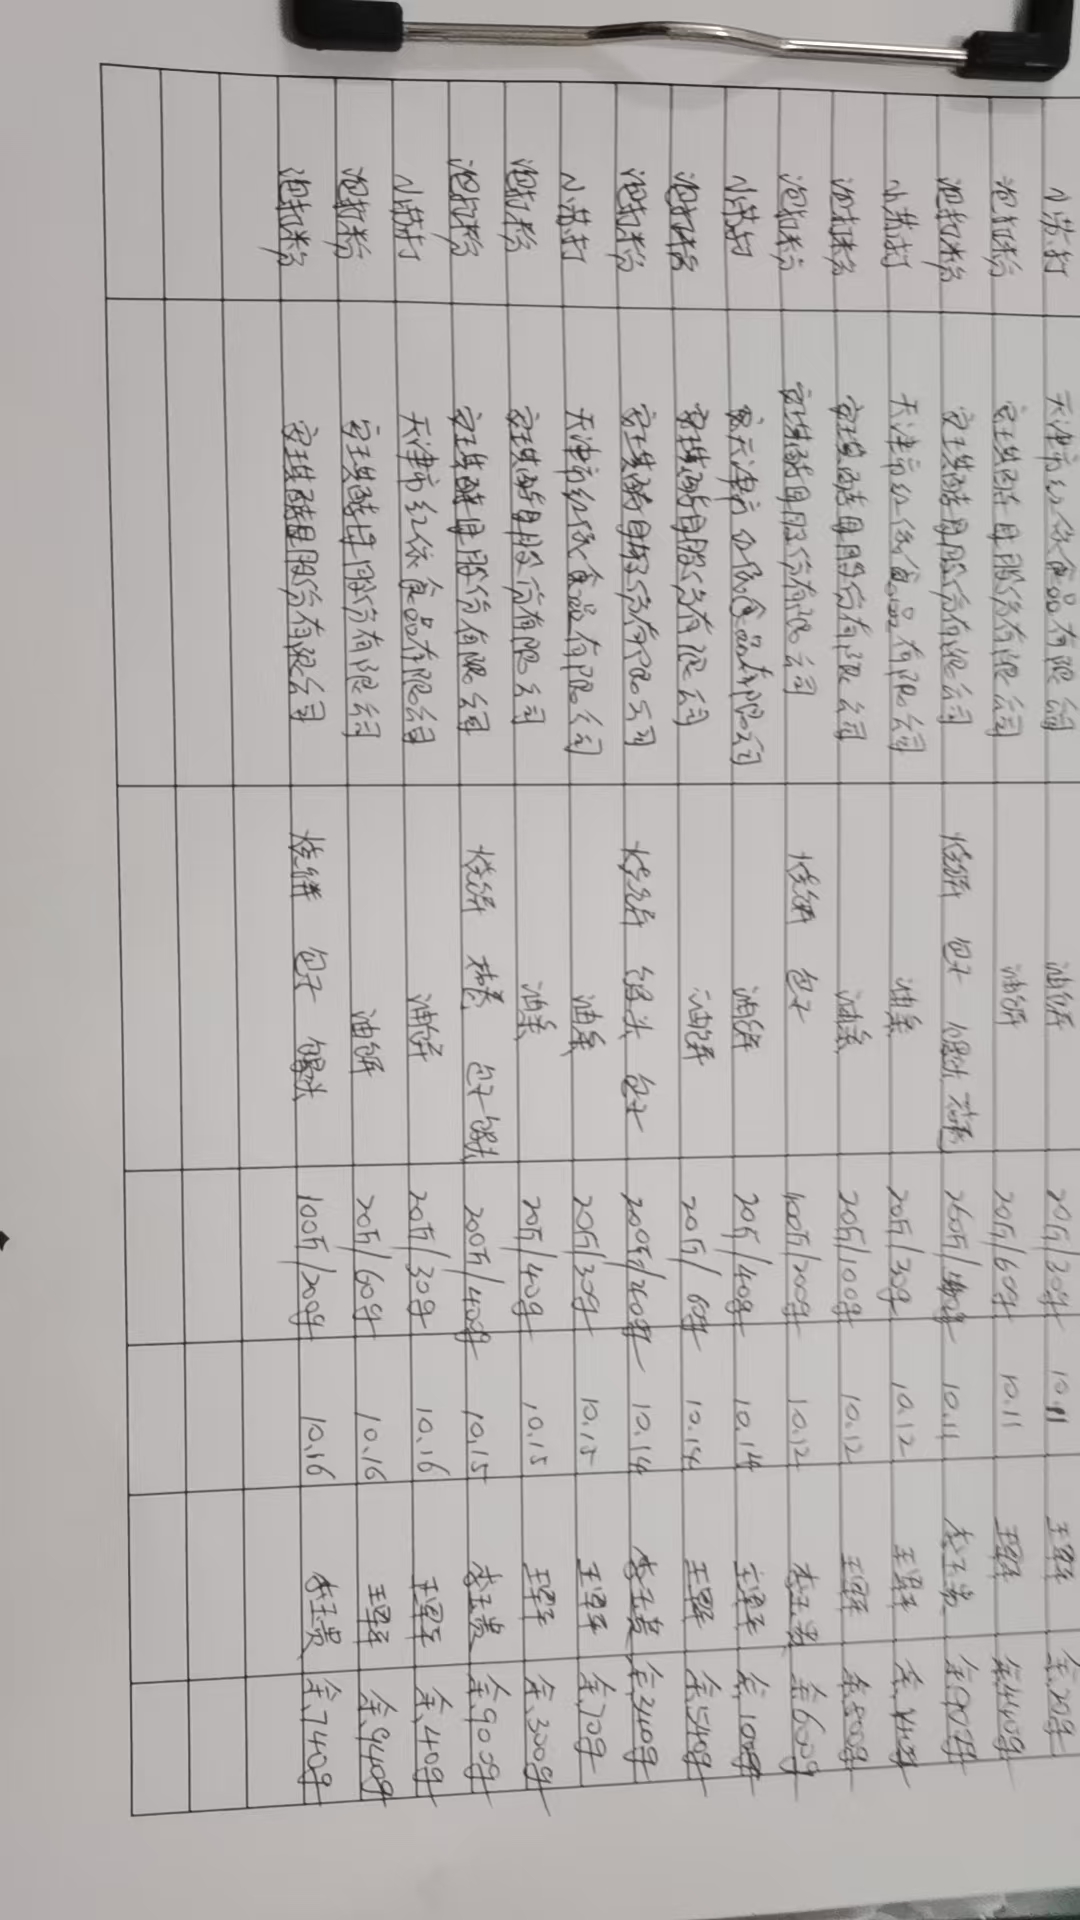 小苏打 天津市红依食品有限公司 油饼 20斤/20克 10.11 余20克
泡打粉 安琪酵母股份有限公司 油饼 20斤/60克 10.11 余440克
泡打粉 安琪酵母股份有限公司 烧饼 包子 馒头 10.11 李玉贵
小苏打 天津市红依食品有限公司 油条 20斤/30克 10.12
泡打粉 安琪酵母股份有限公司 油条 20斤/100克 10.12 余800克
泡打粉 安琪酵母股份有限公司 烧饼 包子 100斤/200克 10.12 李玉贵 余600克
小苏打 天津市红依食品有限公司 油饼 20斤/40克 10.14
泡打粉 安琪酵母股份有限公司 油饼 20斤/60克 10.14 余540克
泡打粉 安琪酵母股份有限公司 烧饼 馒头 包子 200斤/200克 10.14 李玉贵 余340克
小苏打 天津市红依食品有限公司 油条 20斤/30克 10.15 余70克
泡打粉 安琪酵母股份有限公司 油条 20斤/40克 10.15 余300克
泡打粉 安琪酵母股份有限公司 烧饼 包子 馒头 200斤/400克 10.15 李玉贵 余900克
小苏打 天津市红依食品有限公司 油饼 20斤/30克 10.16 余40克
泡打粉 安琪酵母股份有限公司 油饼 20斤/60克 10.16 余940克
泡打粉 安琪酵母股份有限公司 烧饼 包子 馒头 100斤/200克 10.16 李玉贵 余740克